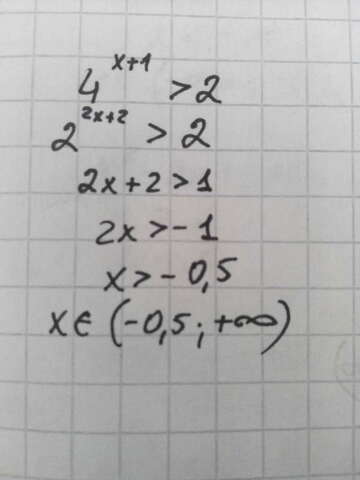 4^{x+1} > 2
2^{2x+2} > 2
2x+2 > 1
2x > -1
x > -0,5
x ∈ (-0,5; +∞)